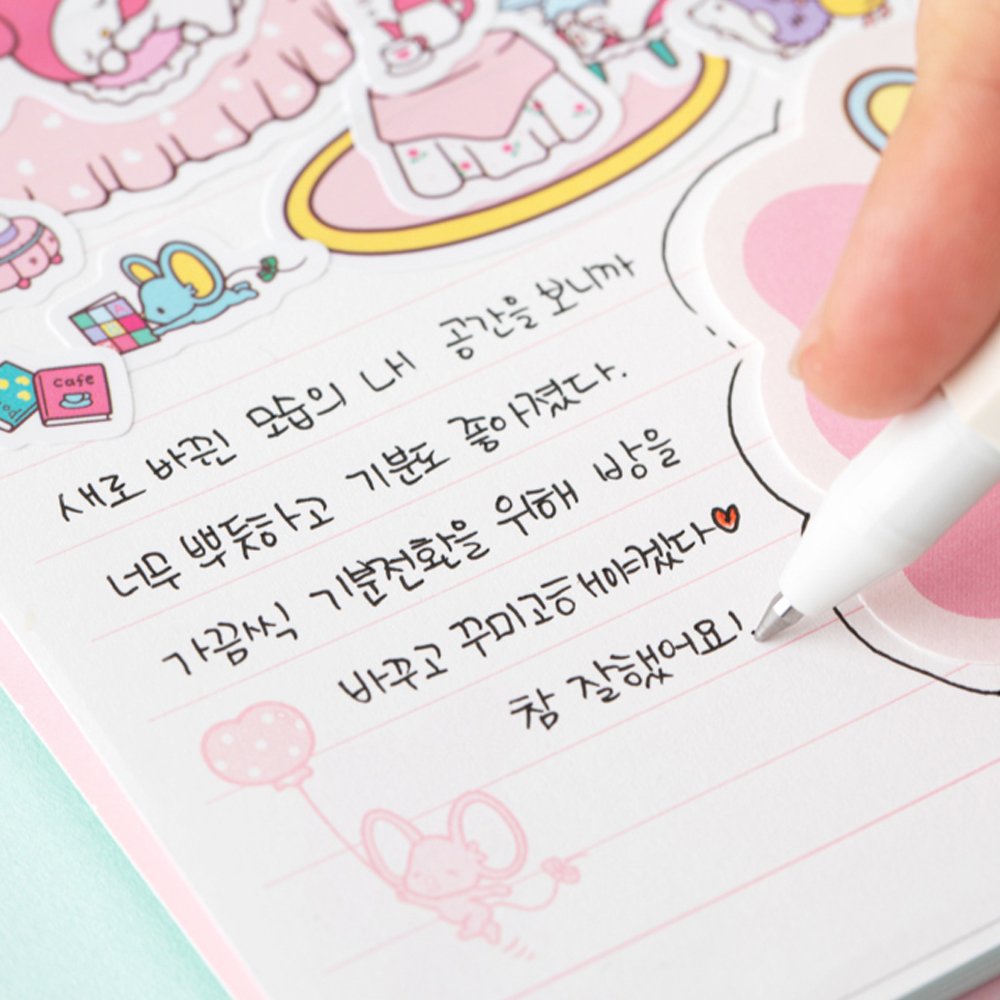 cafe
새로 바뀐 모습의 내 공간을 보니까
너무 뿌듯하고 기분도 좋아졌다.
가끔씩 기분전환을 위해 방을
바꾸고 꾸미고해야겠다♥
참 잘했어요!.